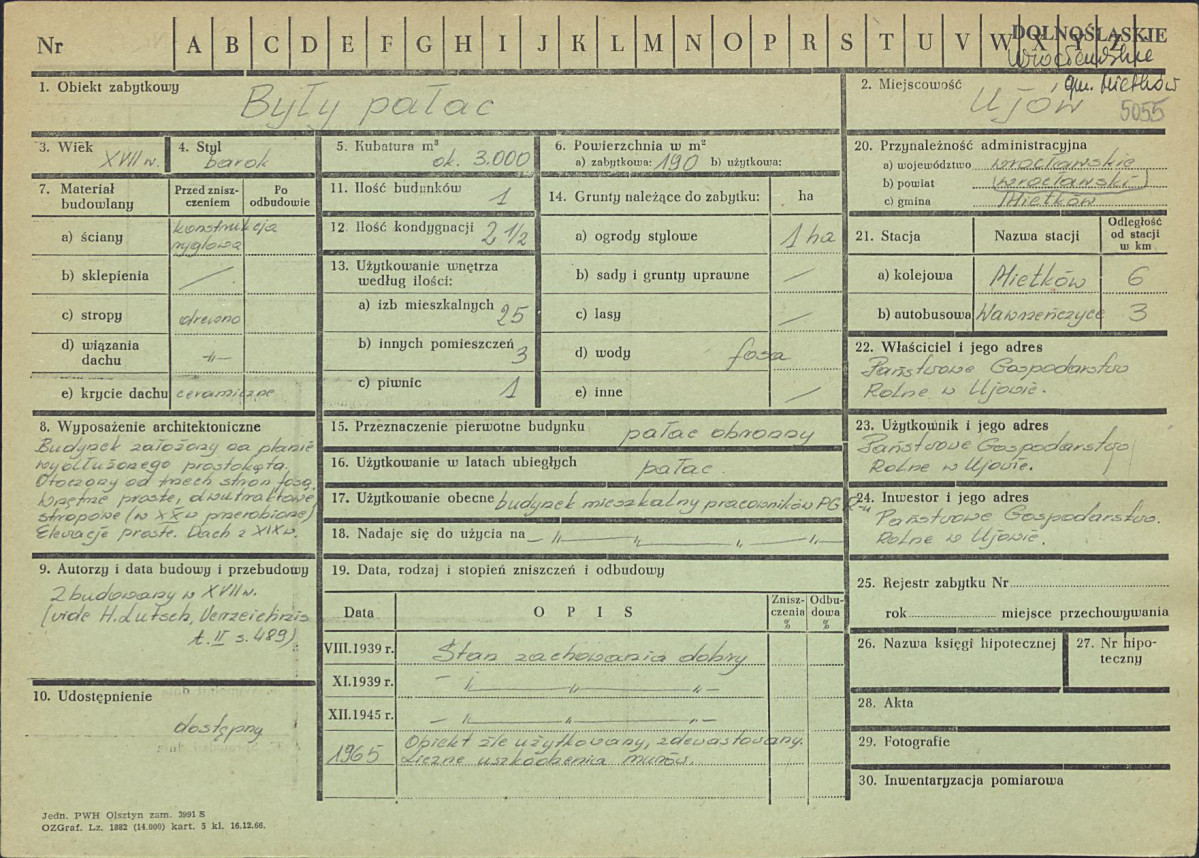 Nr A B C D E F G H I J K L M N O P R S T U V W X Y Z
DOLNOŚLĄSKIE
Wrocławskie
gm. Mietków
1. Obiekt zabytkowy
Były pałac
2. Miejscowość
Ujów
5055
3. Wiek
XVII w.
4. Styl
barok
5. Kubatura m³
ok. 3.000
6. Powierzchnia w m²
a) zabytkowa: 190 b) użytkowa:
7. Materiał budowlany
Przed znisz-
czeniem
Po
odbudowie
a) ściany
konstrukcja
ryglowa
b) sklepienia /
c) stropy drewno
d) wiązania
dachu -"-
e) krycie dachu ceramiczne
8. Wyposażenie architektoniczne
Budynek założony na planie
wydłużonego prostokąta.
Otoczony od trzech stron fosą.
Wnętrze proste, dwutraktowe
stropowe (w XX w przerobione)
Elewacje proste. Dach z XIX w.
9. Autorzy i data budowy i przebudowy
Zbudowany w XVII w.
(vide H. Lutsch, Verzeichnis
t. II s. 489)
10. Udostępnienie
dostępny
11. Ilość budynków
1
12. Ilość kondygnacji 2 1/2
13. Użytkowanie wnętrza
według ilości:
a) izb mieszkalnych 25
b) innych pomieszczeń 3
c) piwnic 1
14. Grunty należące do zabytku: ha
a) ogrody stylowe 1 ha
b) sady i grunty uprawne /
c) lasy /
d) wody fosa
e) inne /
15. Przeznaczenie pierwotne budynku pałac obronny
16. Użytkowanie w latach ubiegłych pałac
17. Użytkowanie obecne budynek mieszkalny pracowników PGR-u
18. Nadaje się do użycia na -"- " -"-
19. Data, rodzaj i stopień zniszczeń i odbudowy
Data
O P I S
Znisz-
czenia
%
Odbu-
dowa
%
VIII.1939 r. Stan zachowania dobry
XI.1939 r. - " - " - " -
XII.1945 r. - " - " - " -
1965
Obiekt źle użytkowany, zdewastowany.
Liczne uszkodzenia murów.
20. Przynależność administracyjna
a) województwo wrocławskie
b) powiat (wrocławski)
c) gmina Mietków
21. Stacja
Nazwa stacji
Odległość
od stacji
w km
a) kolejowa Mietków 6
b) autobusowa Wawrzeńczyce 3
22. Właściciel i jego adres
Państwowe Gospodarstwo
Rolne w Ujowie.
23. Użytkownik i jego adres
Państwowe Gospodarstwo
Rolne w Ujowie.
24. Inwestor i jego adres
Państwowe Gospodarstwo.
Rolne w Ujowie.
25. Rejestr zabytku Nr
rok miejsce przechowywania
26. Nazwa księgi hipotecznej
27. Nr hipo-
teczny
28. Akta
29. Fotografie
30. Inwentaryzacja pomiarowa
Jedn. PWH Olsztyn zam. 3991 S
OZGraf. Lz. 1882 (14.000) kart. 5 kl. 16.12.66.